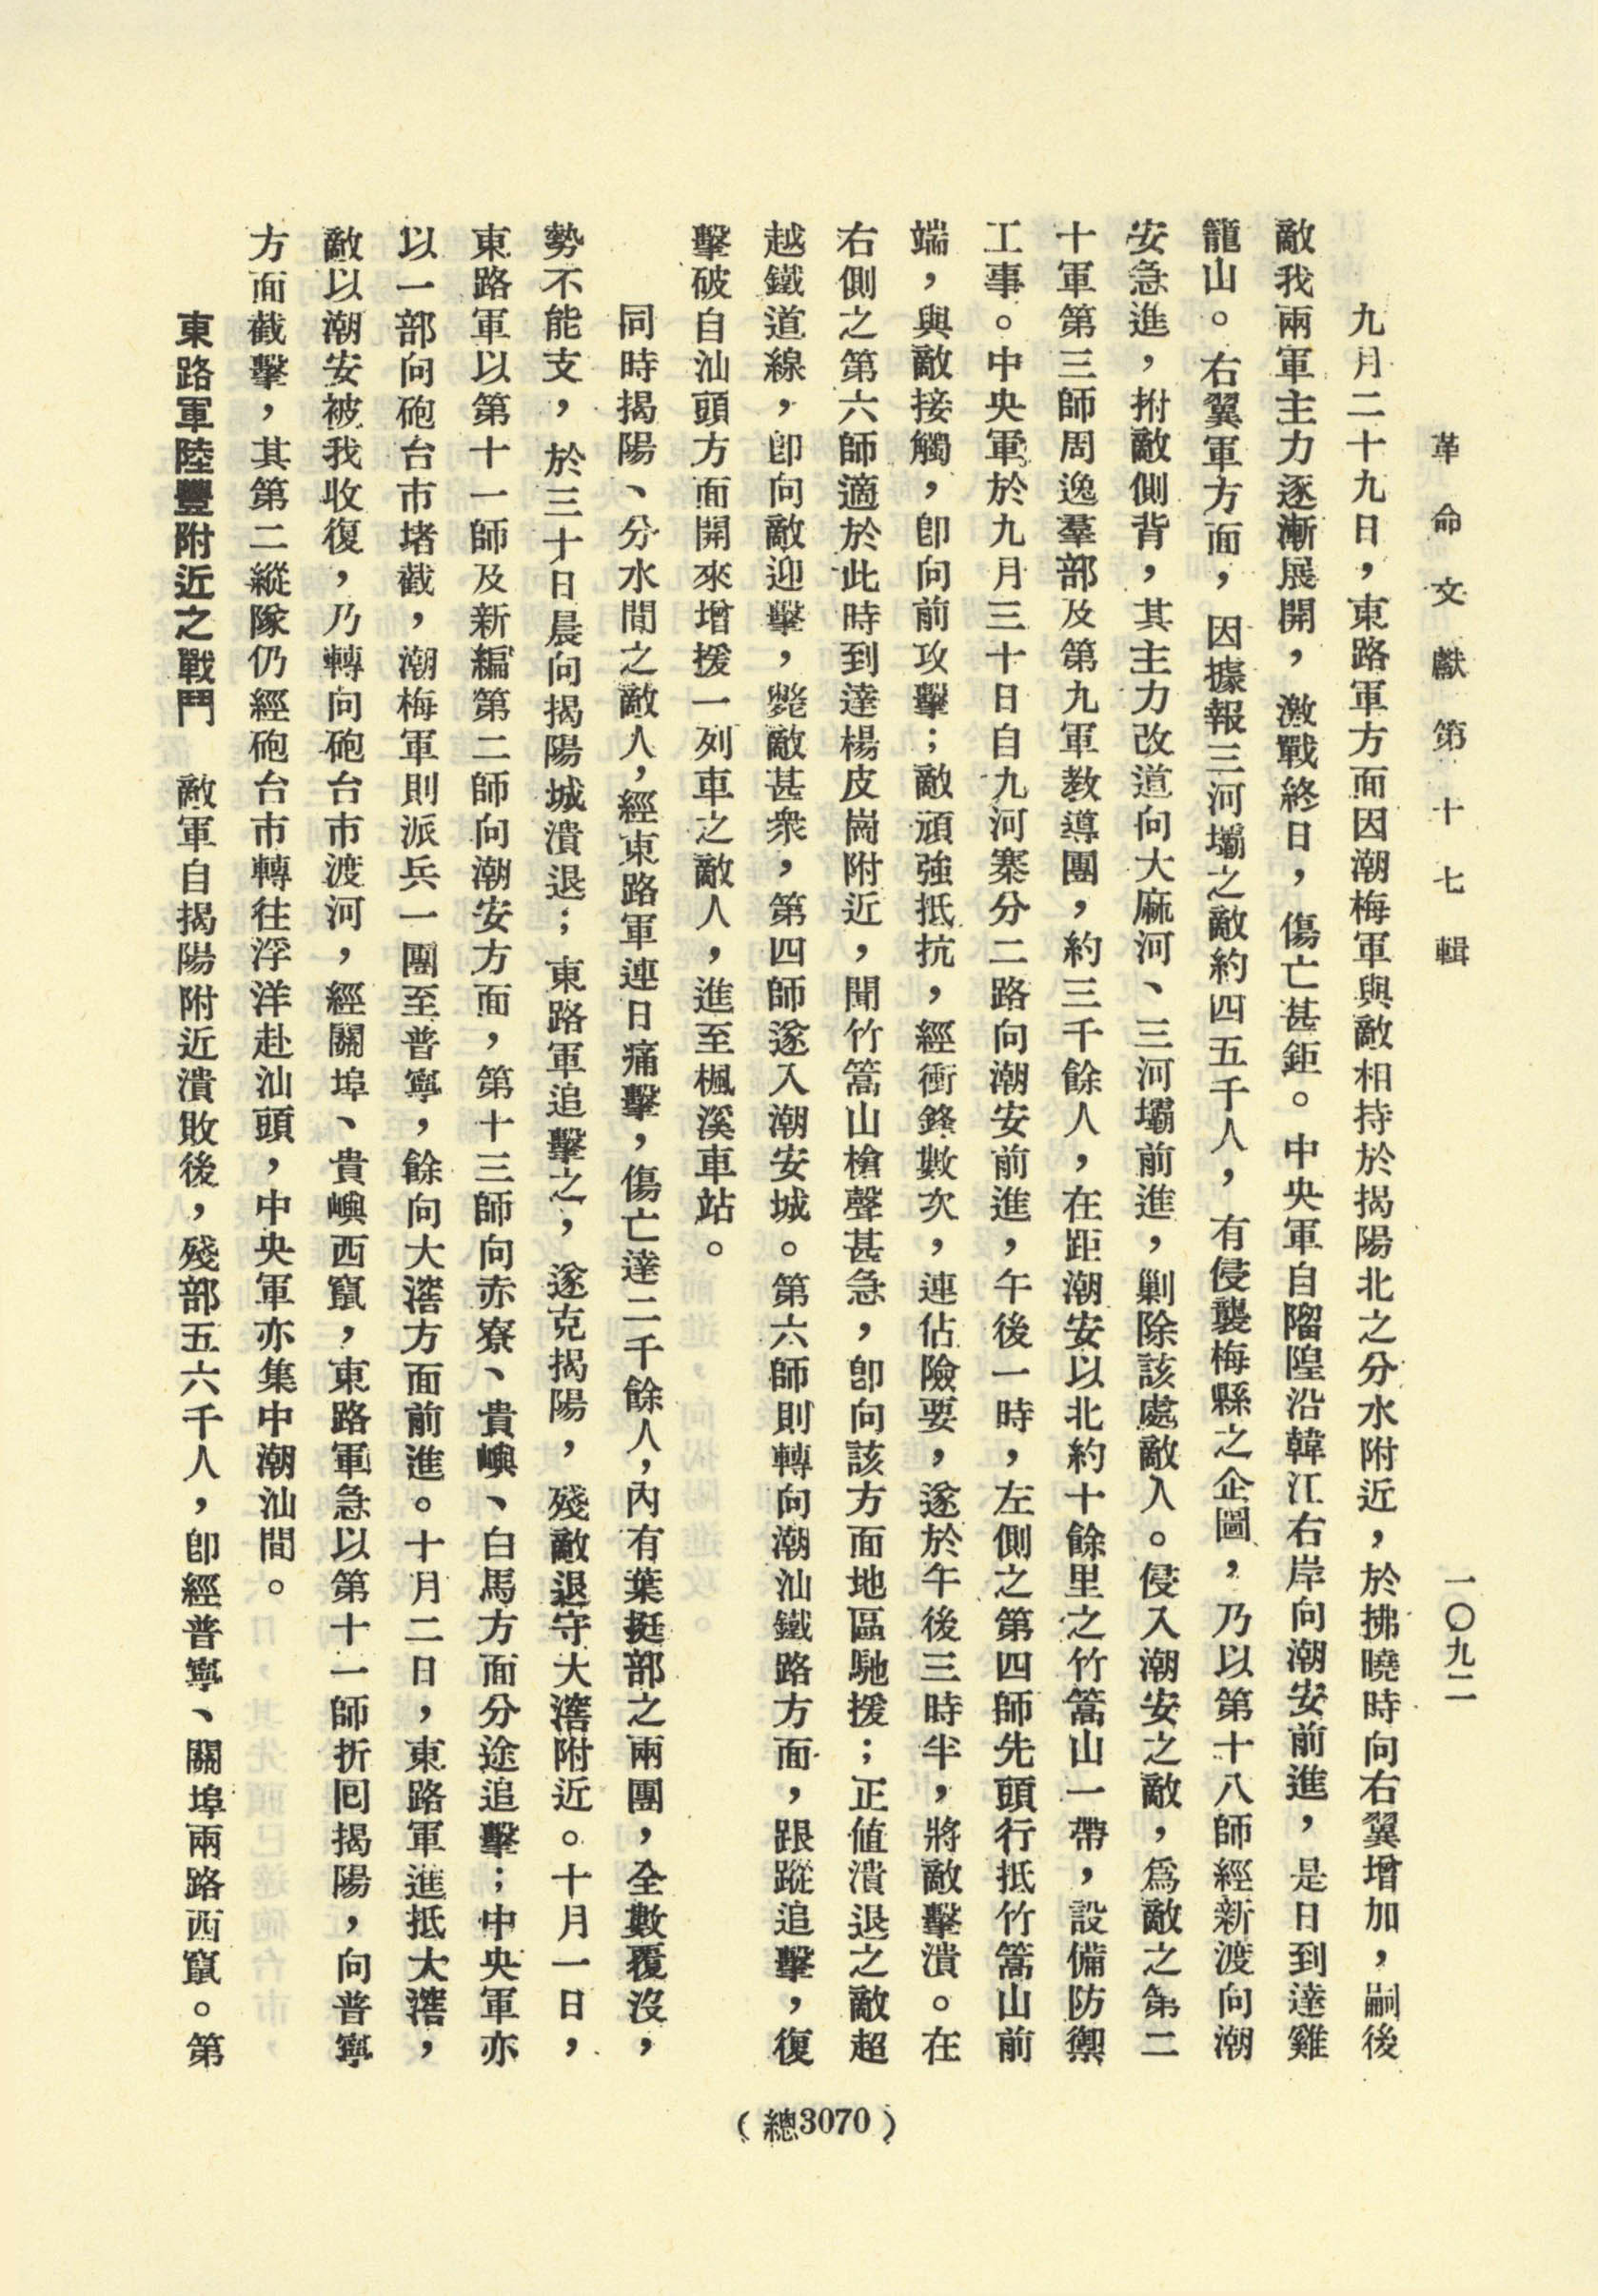 革命文獻第十七輯
一〇九二
九月二十九日，東路軍方面因潮梅軍與敵相持於揭陽北之分水附近，於拂曉時向右翼增加，嗣後
敵我兩軍主力逐漸展開，激戰終日，傷亡甚鉅。中央軍自䧜隍沿韓江右岸向潮安前進，是日到達雞
籠山。右翼軍方面，因據報三河壩之敵約四五千人，有侵襲梅縣之企圖，乃以第十八師經新渡向潮
安急進，拊敵側背，其主力改道向大麻河、三河壩前進，剿除該處敵人。侵入潮安之敵，爲敵之第二
十軍第三師周逸羣部及第九軍教導團，約三千餘人，在距潮安以北約十餘里之竹篙山一帶，設備防禦
工事。中央軍於九月三十日自九河寨分二路向潮安前進，午後一時，左側之第四師先頭行抵竹篙山前
端，與敵接觸，卽向前攻擊；敵頑強抵抗，經衝鋒數次，連佔險要，遂於午後三時半，將敵擊潰。在
右側之第六師適於此時到達楊皮崗附近，聞竹篙山槍聲甚急，卽向該方面地區馳援；正值潰退之敵超
越鐵道線，卽向敵迎擊，斃敵甚衆，第四師遂入潮安城。第六師則轉向潮汕鐵路方面，跟蹤追擊，復
擊破自汕頭方面開來增援一列車之敵人，進至楓溪車站。
同時揭陽、分水間之敵人，經東路軍連日痛擊，傷亡達二千餘人，內有葉挺部之兩團，全數覆沒，
勢不能支，於三十日晨向揭陽城潰退；東路軍追擊之，遂克揭陽，殘敵退守大㴖附近。十月一日，
東路軍以第十一師及新編第二師向潮安方面，第十三師向赤寮、貴嶼、白馬方面分途追擊；中央軍亦
以一部向砲台市堵截，潮梅軍則派兵一團至普寧，餘向大㴖方面前進。十月二日，東路軍進抵大㴖，
敵以潮安被我收復，乃轉向砲台市渡河，經關埠、貴嶼西竄，東路軍急以第十一師折回揭陽，向普寧
方面截擊，其第二縱隊仍經砲台市轉往浮洋赴汕頭，中央軍亦集中潮汕間。
東路軍陸豐附近之戰鬥　敵軍自揭陽附近潰敗後，殘部五六千人，卽經普寧、關埠兩路西竄。第
（總3070）